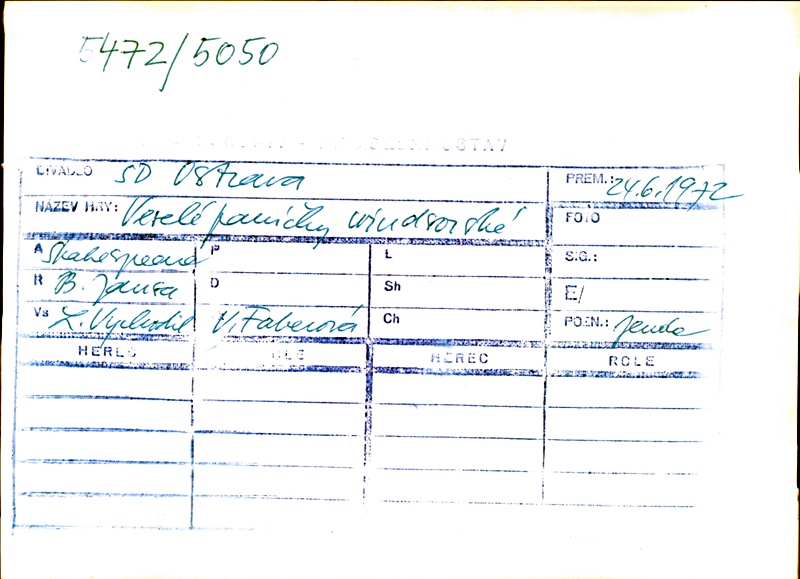 5472/5050
DIVADLO SD Ostrava PREM.: 24.6.1972
NÁZEV HRY: Veselé paničky windsorské FOTO
A Shakespeare P L SIG.:
R B. Jansa D Sh E/
Vs L. Vychodil V. Faberová Ch POZN.: Jenda
HEREC ROLE HEREC ROLE